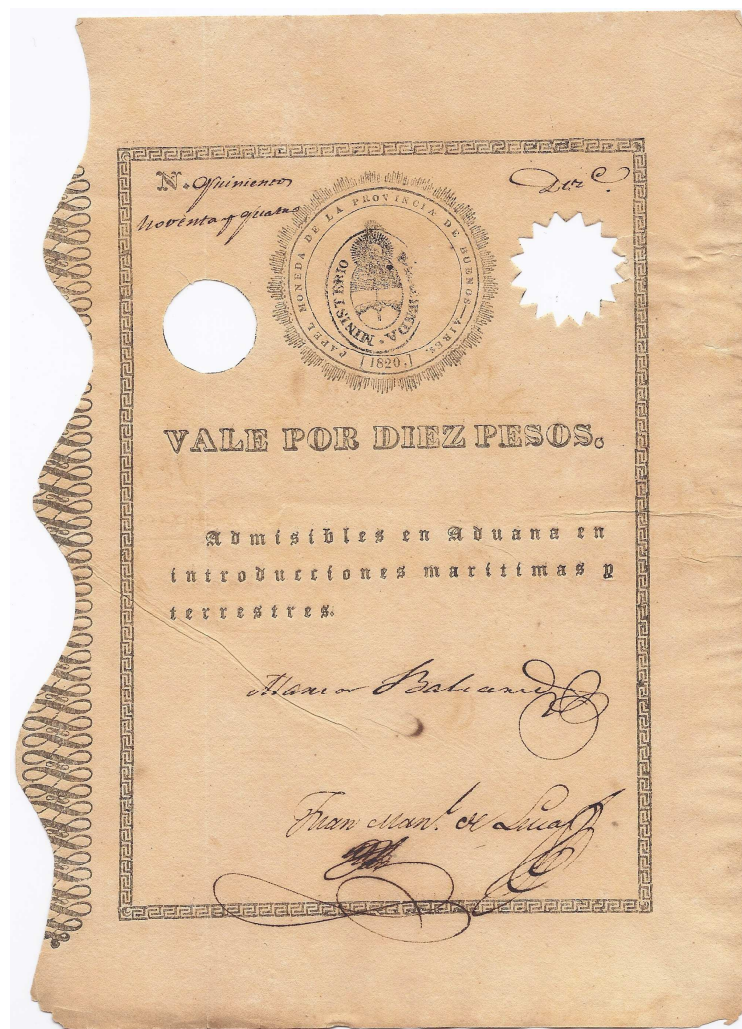 N. Quinientos
Noventa y quatro
PAPEL MONEDA DE LA PROVINCIA DE BUENOS-AIRES.
MINISTERIO
[1820.]
VALE POR DIEZ PESOS.
Admisibles en Aduana en
introducciones marítimas y
terrestres.
Juan Man.l de Luca